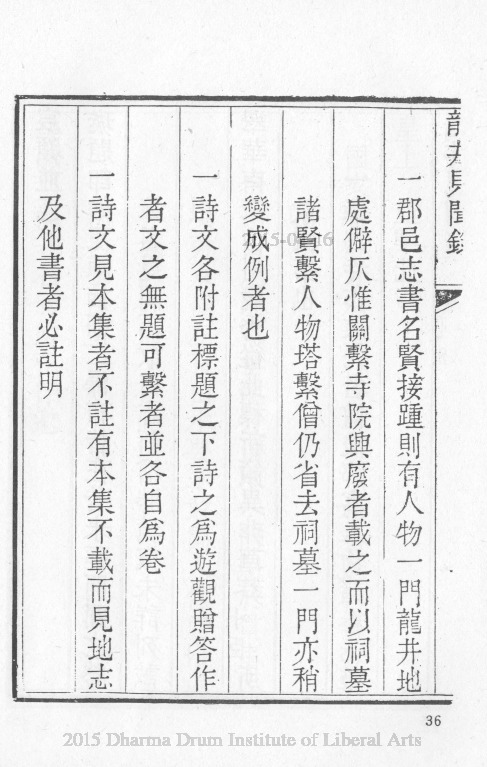 龍井見聞錄
一郡邑志書名賢接踵則有人物一門龍井地
處僻仄惟關繫寺院興廢者載之而以祠墓
諸賢繫人物塔繫僧仍省去祠墓一門亦稍
變成例者也
一詩文各附註標題之下詩之爲遊觀贈答作
者文之無題可繫者並各自爲卷
一詩文見本集者不註有本集不載而見地志
及他書者必註明
36
2015 Dharma Drum Institute of Liberal Arts